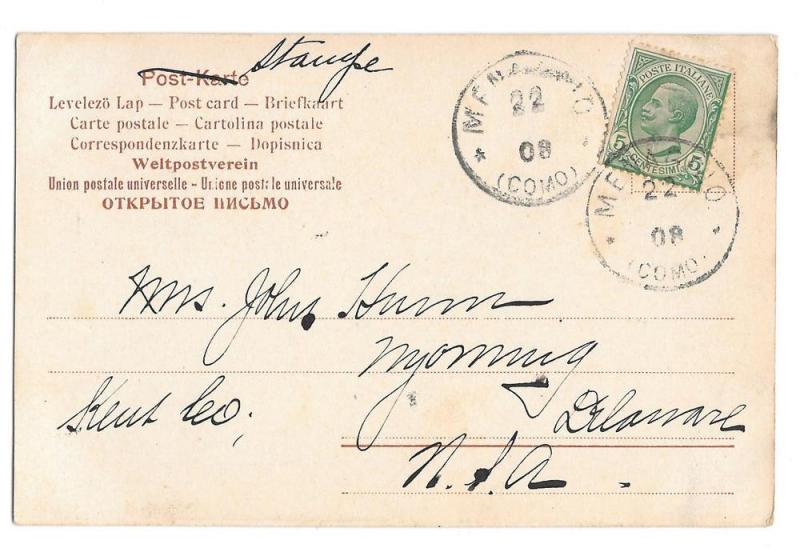 Post-Karte Stampe
Levelezö Lap — Post card — Briefkaart
Carte postale — Cartolina postale
Correspondenzkarte — Dopisnica
Weltpostverein
Union postale universelle - Unione postale universale
ОТКРЫТОЕ ПИСЬМО
POSTE ITALIANE
5 CENTESIMI 5
MENAGGIO
22
08
(COMO)
22
08
(COMO)
Mrs. John Hurm
Wyoming
Kent Co; Delaware
U.S.A.